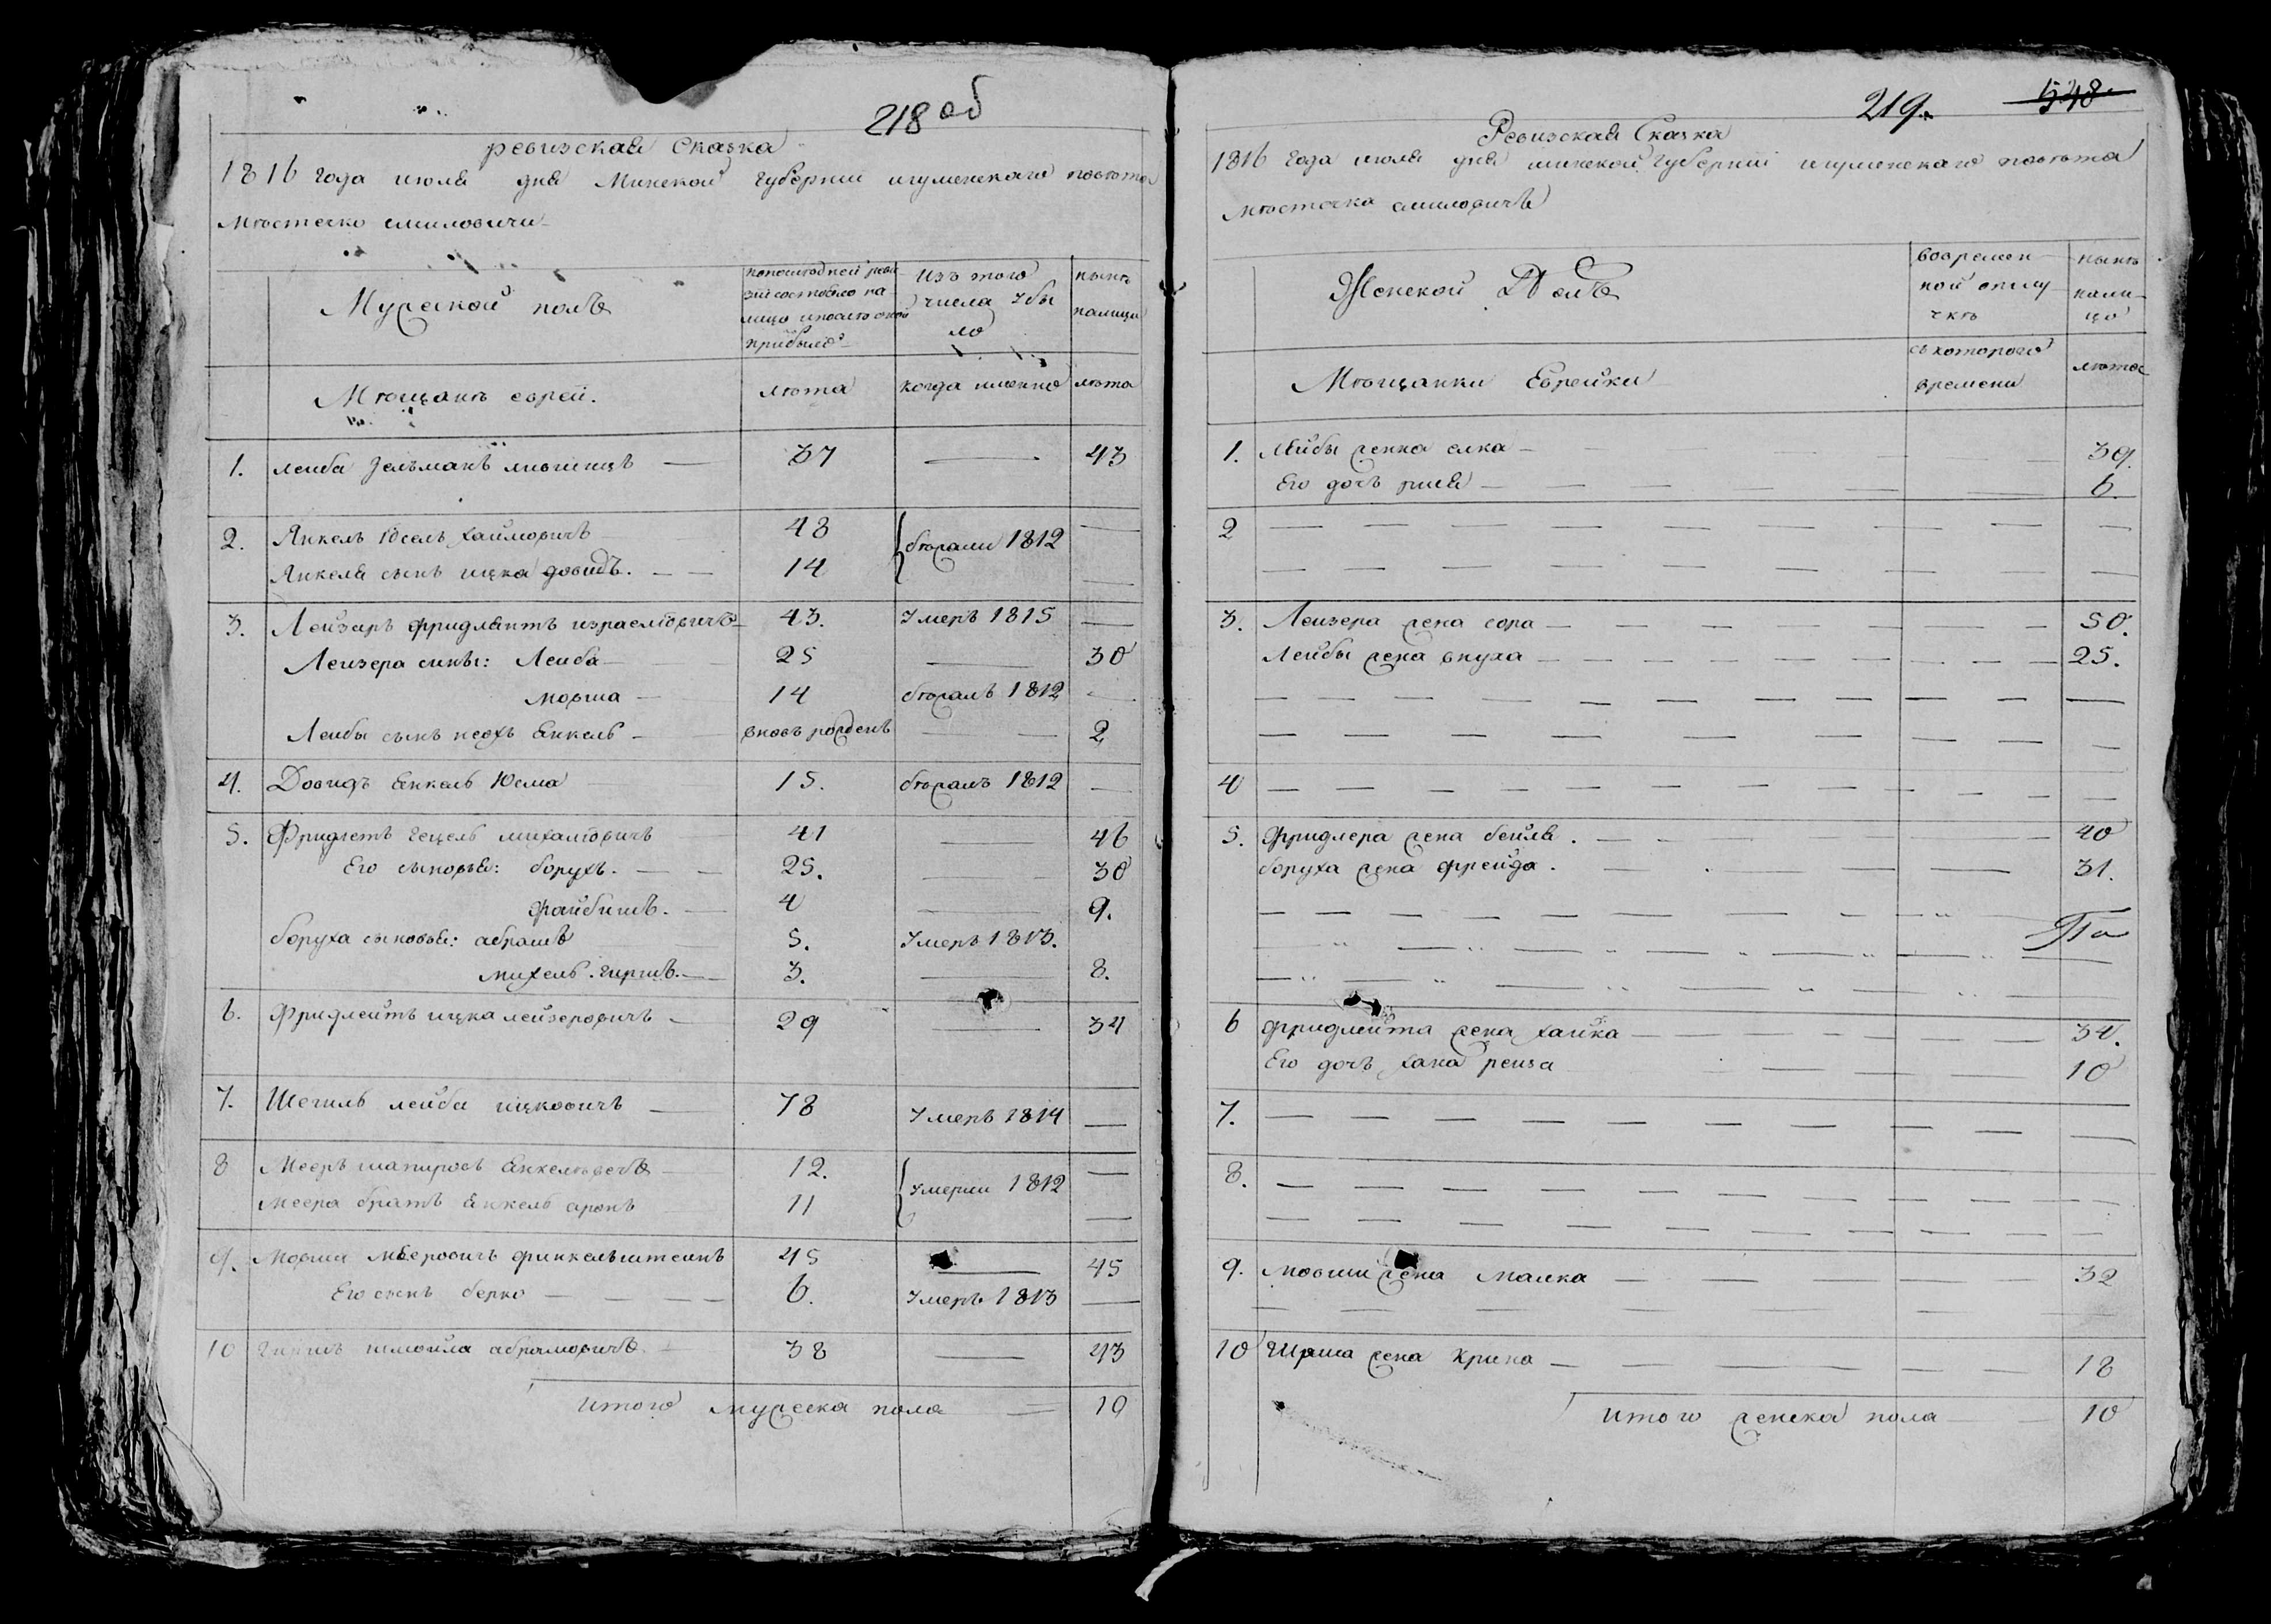 218 об
ревизская Сказка
1816 года июля дня Минской губернии игуменскаго повѣта
мѣстечко смиловичи
Мужской полъ
попоследней реви
зии состояло на
лицо и после оной
прибыло
Изъ того
числа убы
ло
нынѣ
налицо
Мѣщанѣ евреи.
лѣта
когда именно
лѣта
1. леиба Зельманъ 37 — 43
2. Янкель Іосель хаймовичъ 48 бѣжали 1812 —
Янкеля сынъ ицка довидъ. 14 —
3. Лейзаръ фридлянтъ израелювичъ 43. Умеръ 1815 —
Леизера сины: Леиба 25 — 30
мовша 14 бѣжалъ 1812 —
Леибы сынъ несхъ Енкель вновь рожденъ — 2
4. Довидъ Енкель Юсма 15. бѣжалъ 1812 —
5. Фридлетъ гецель михалювичъ 41 — 46
Его сыновья: борухъ. 25. — 30
файбишъ. 4 — 9.
боруха сыновья: абрамъ 5. Умеръ 1813.
михель. гиршъ. 3. — 8.
6. Фридлейтъ ицка лейзеровичъ 29 — 34
7. Шегиль лейба ицковичъ 78 Умеръ 1814 —
8 Мееръ шапиросъ Енкелевечъ 12. Умерли 1812 —
Меера братъ Енкель аронъ 11 —
9. Мовша мееровичъ финкельштеинъ 45 — 45
Его сынъ берко 6. Умеръ 1813 —
10 гиршъ шмойла абрамовичъ 38 — 43
итого мужеска пола 10
219. 548
Ревизская Сказка
1816 года июля дня минской губернии игуменскаго повѣта
мѣстечка смиловичъ
Женской Полъ
вовремен
ной отлу
чкѣ
нынѣ
нали
цо
Мѣщанки Еврейки
съ котораго
времени
лѣта
1. Лейбы женка елка — 39.
Его дочъ 6.
2 —
3. Леизера жена сора — 50.
Лейбы жена внуха — 25.
4 —
5. Фридлера жена бейля. — 40
боруха жена фрейда. — 31.
6 фридлейта жена хайка — 34.
Его дочъ хана реиза 10
7. —
8. —
9. мовши жена Малка — 32
10 Гирша жена Крина — 18
итого женска пола — 10